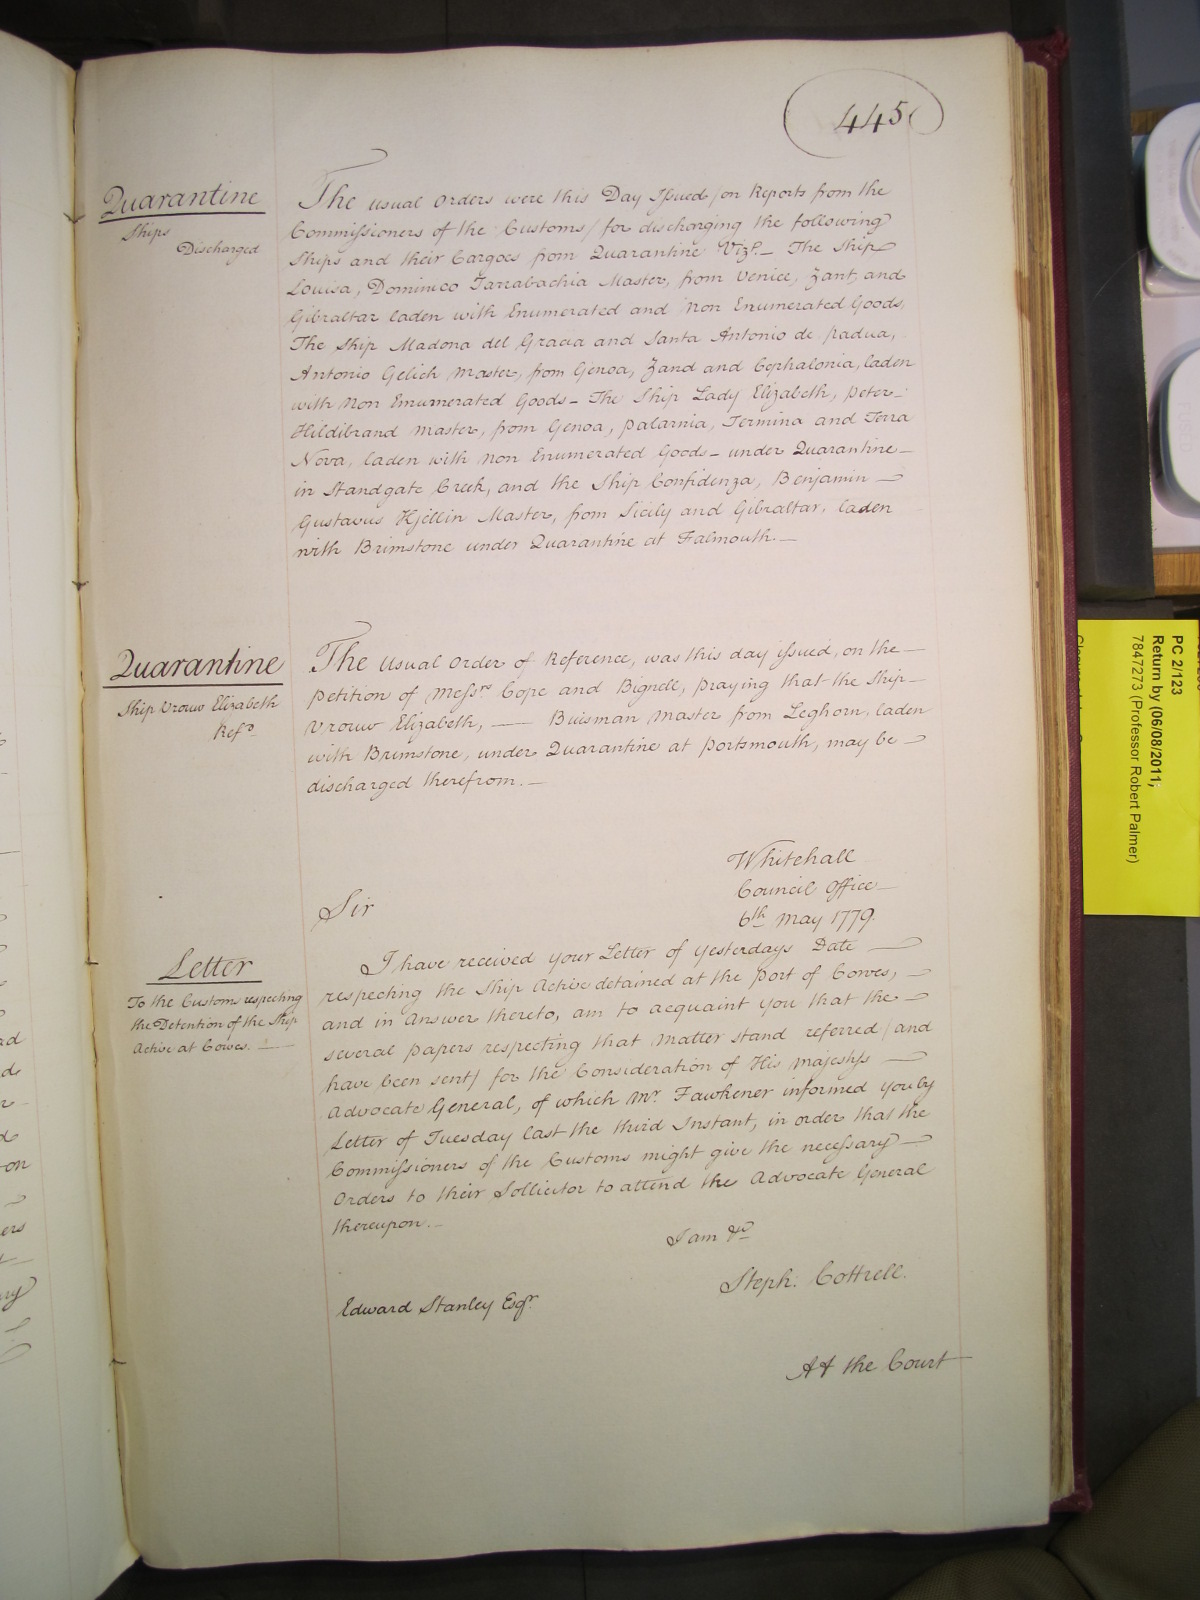 445
Quarantine
Ships
Discharged
The usual Orders were this Day Issued (on Reports from the
Commissioners of the Customs) for discharging the following
Ships and their Cargoes from Quarantine Vizt.— The Ship
Louisa, Dominico Tarrabachia Master, from Venice, Zant, and
Gibraltar laden with Enumerated and Non Enumerated Goods,
The Ship Madona del Gracia and Santa Antonio de Padua,
Antonio Gelich Master, from Genoa, Zand and Cephalonia, laden
with Non Enumerated Goods— The Ship Lady Elizabeth, Peter
Hildibrand Master, from Genoa, Palarnia, Termina and Terra
Nova, laden with non Enumerated Goods— under Quarantine—
in Standgate Creek, and the Ship Confidenza, Benjamin—
Gustavus Hjellin Master, from Sicily and Gibraltar, laden
with Brimstone under Quarantine at Falmouth.—
Quarantine
Ship Vrouw Elizabeth
Refd.
The usual Order of Reference, was this day issued, on the—
Petition of Messrs Cope and Bignell, praying that the Ship—
Vrouw Elizabeth, — Buisman Master from Leghorn, laden
with Brimstone, under Quarantine at Portsmouth, may be—
discharged therefrom.—
Whitehall
Council Office
6th May 1779.
Sir
Letter
To the Customs respecting
the Detention of the Ship
Active at Cowes.
I have received your Letter of yesterdays Date—
respecting the Ship Active detained at the Port of Cowes,—
and in Answer thereto, am to acquaint you that the—
several Papers respecting that Matter stand referred (and
have been sent) for the Consideration of His Majestys—
Advocate General, of which Mr. Fawkener informed you by
Letter of Tuesday last the third Instant, in order that the
Commissioners of the Customs might give the necessary—
Orders to their Sollicitor to attend the Advocate General
thereupon.—
I am &c
Steph: Cottrell.
Edward Stanley Esqr.
At the Court
PC 2/123
Return by (06/08/2011;
7847273 (Professor Robert Palmer)